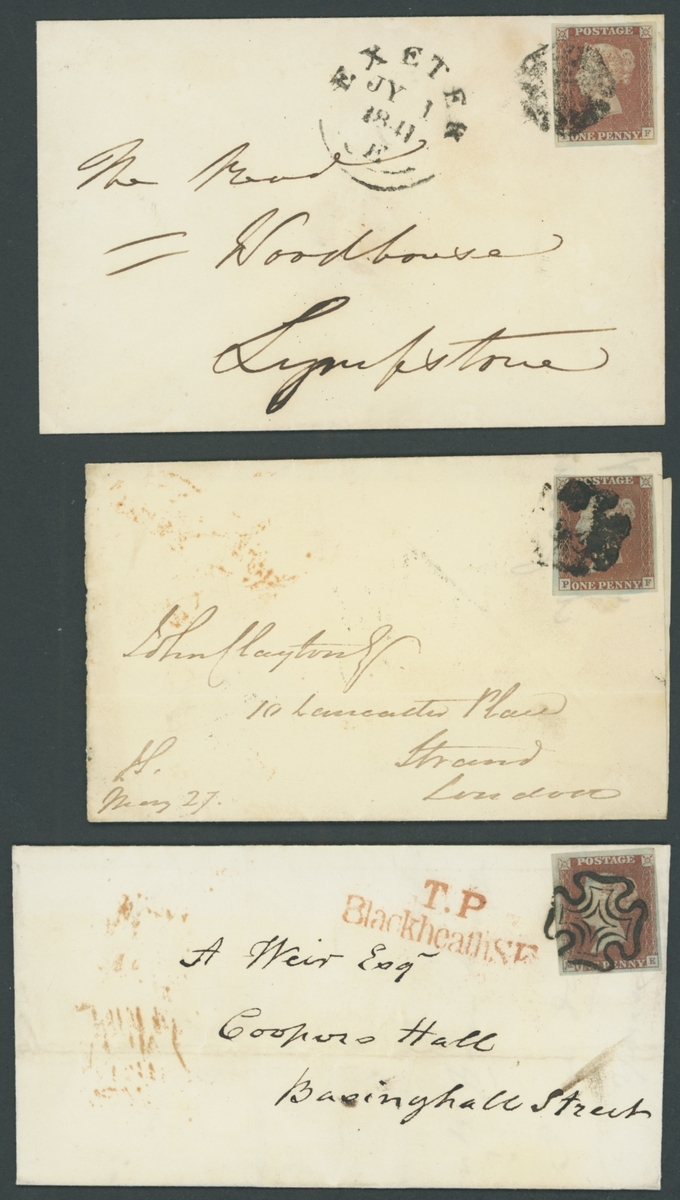 POSTAGE
ONE PENNY F
EXETER
JY 1
1841
The
Woodhouse
Lympstone
POSTAGE
P ONE PENNY F
John Clayton Esq
10 Lancaster Place
Strand
London
May 27.
POSTAGE
ONE PENNY E
T.P
Blackheath S.E
A Weir Esqr
Coopers Hall
Basinghall Street